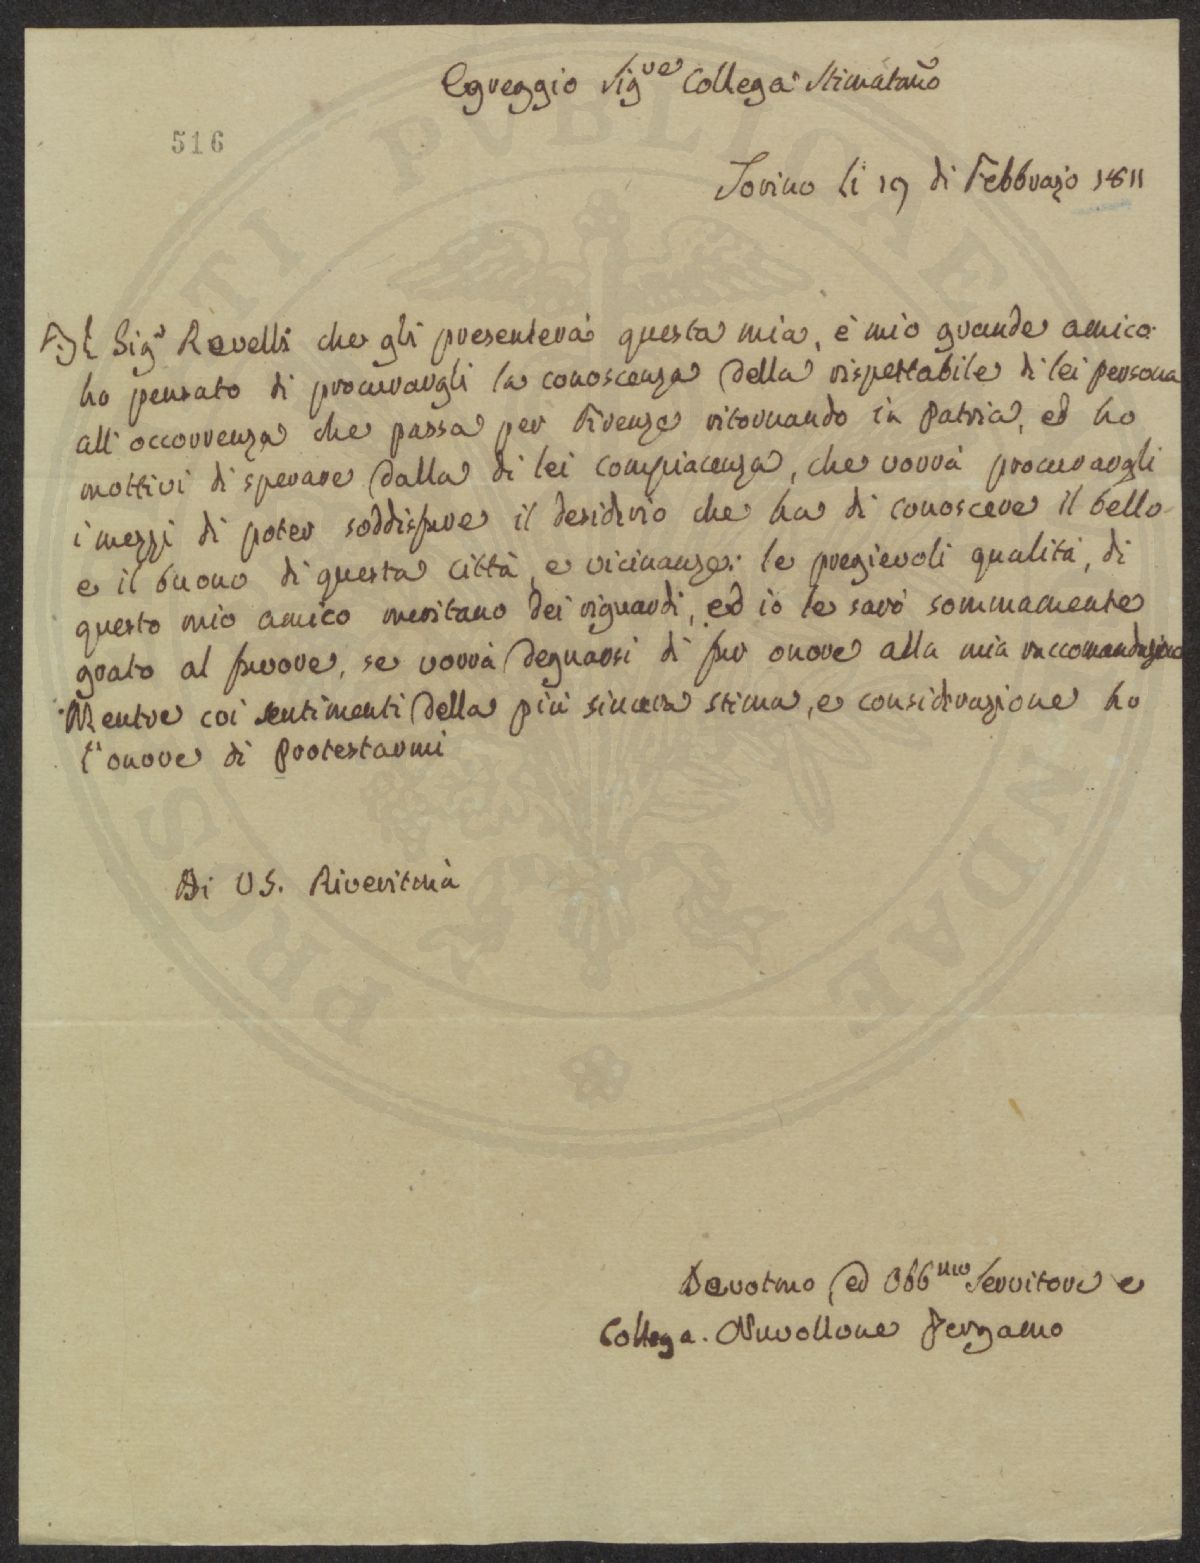 Egreggio Sig.re Collega Stimatmo
516
Torino li 19 di Febbrajo 1811
Il Sig.r Ravelli che gli presenterà questa mia, è mio grande amico
ho pensato di procurargli la conoscenza della rispettabile di lei persona
all'occorrenza che passa per Firenze ritornando in Patria, ed ho
mottivi di sperare dalla di lei compiacenza, che vorrà procurargli
i mezzi di poter soddisfare il desiderio che ha di conoscere il bello
e il buono di questa città, e vicinanze: le pregievoli qualità, di
questo mio amico meritano dei riguardi, ed io le sarò sommamente
grato al favore, se vorrà degnarsi di far onore alla mia raccomandazione
Mentre coi sentimenti della più sincera stima, e considerazione ho
l'onore di Protestarmi
Di V.S. Riveritma
Devotmo ed Obbmo Servitore e
Collega. Nuvollone Pergamo
PROSPERITATI PVBLICAE AVGENDAE